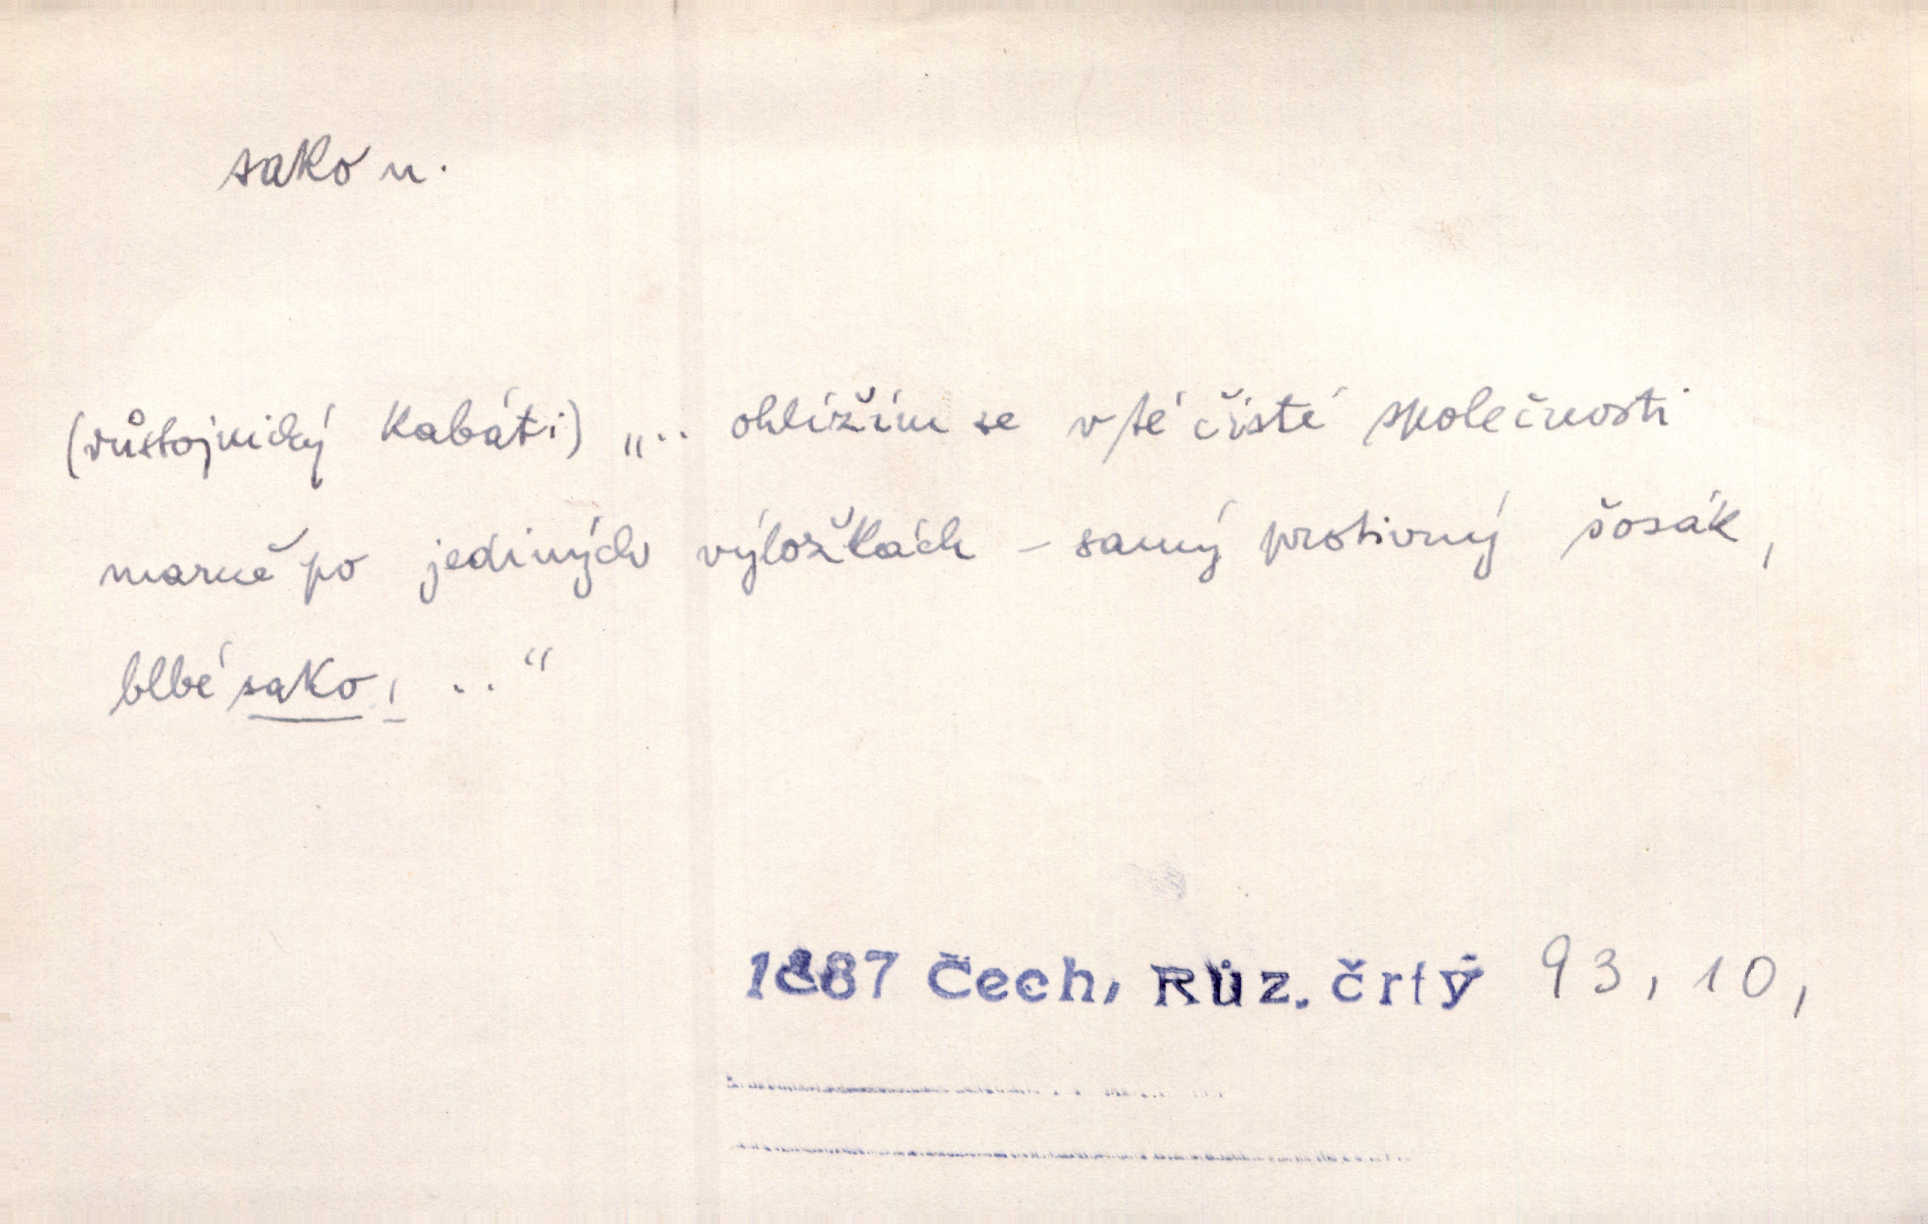 sako n.
(důstojnický kabát:) „.. ohlížím se v té čisté společnosti
marně po jediných výložkách – samý protivný šosák,
blbé sako, .."
1887 Čech, Růz. črty 93, 10,